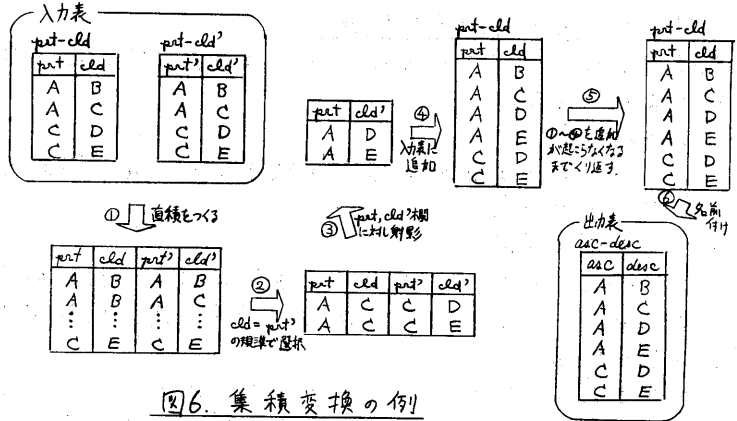 入力表
prt-cld
prt cld
A B
A C
C D
C E
prt-cld'
prt' cld'
A B
A C
C D
C E
① 直積をつくる
prt cld prt' cld'
A B A B
A B A C
⋮ ⋮ ⋮ ⋮
C E C E
②
cld = prt'
の規準で選択
prt cld prt' cld'
A C C D
A C C E
③ prt, cld'欄
に対し射影
prt cld'
A D
A E
④
入力表に
追加
prt-cld
prt cld
A B
A C
A D
A E
C D
C E
⑤
①~④を追加
が起こらなくなる
までくり返す.
prt-cld
prt cld
A B
A C
A D
A E
C D
C E
⑥ 名前
付け
出力表
asc-desc
asc desc
A B
A C
A D
A E
C D
C E
図6. 集積変換の例